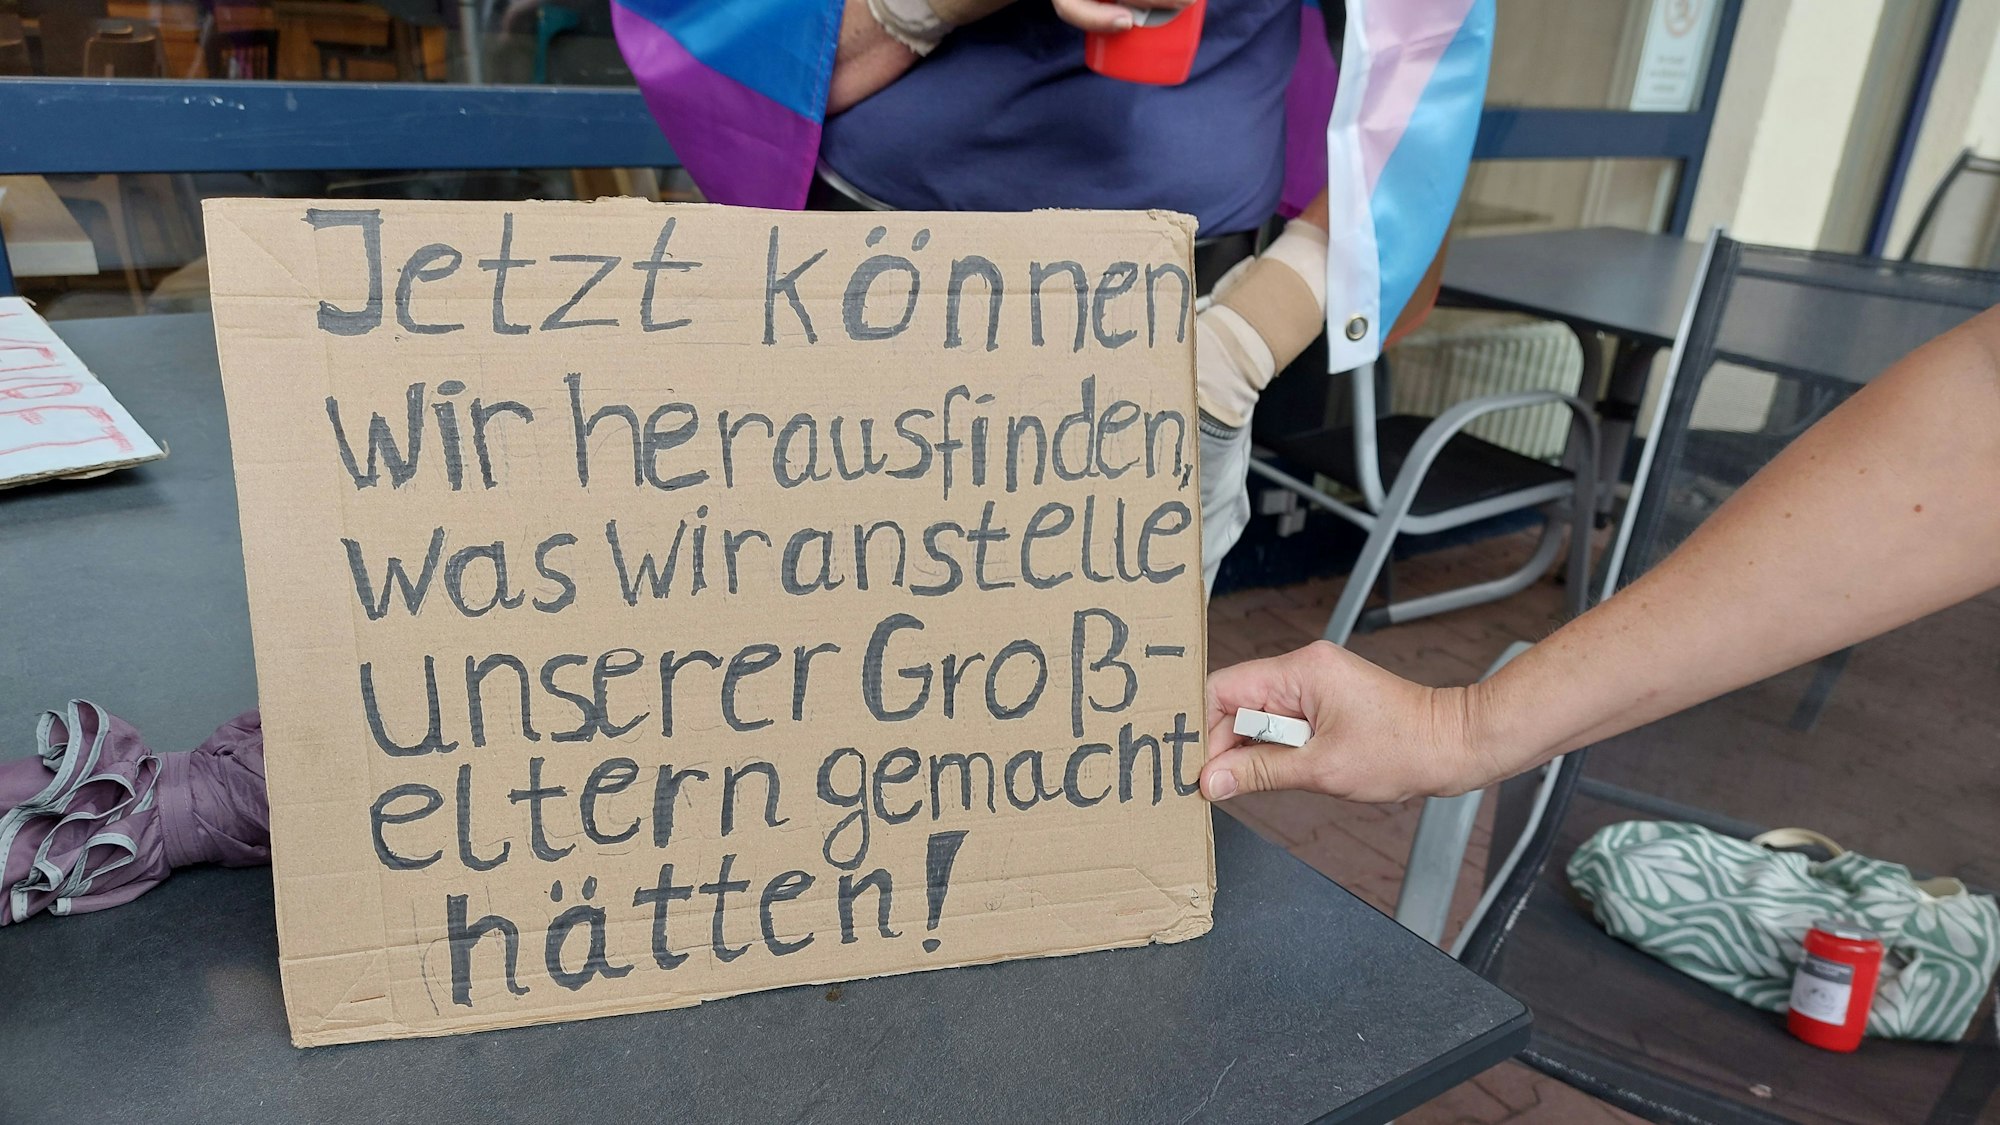 Jetzt können
wir herausfinden,
was wir anstelle
unserer Groß-
eltern gemacht
hätten!